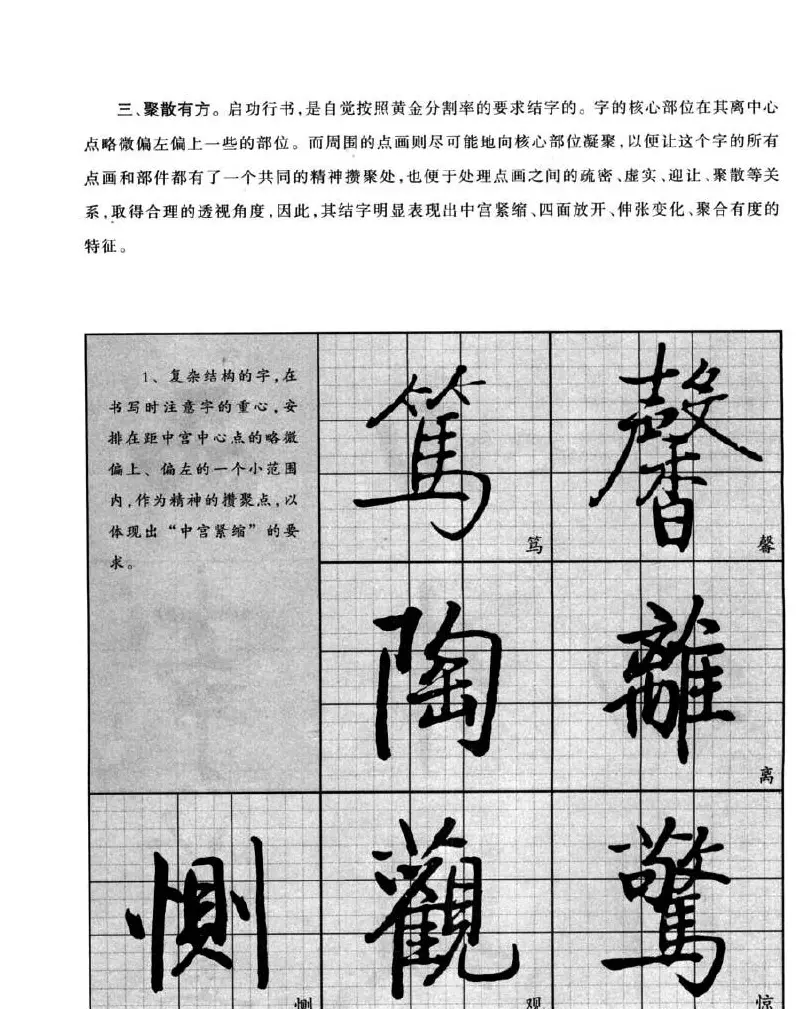 三、聚散有方。启功行书,是自觉按照黄金分割率的要求结字的。字的核心部位在其离中心
点略微偏左偏上一些的部位。而周围的点画则尽可能地向核心部位凝聚,以便让这个字的所有
点画和部件都有了一个共同的精神攒聚处,也便于处理点画之间的疏密、虚实、迎让、聚散等关
系,取得合理的透视角度,因此,其结字明显表现出中宫紧缩、四面放开、伸张变化、聚合有度的
特征。
1、复杂结构的字,在
书写时注意字的重心,安
排在距中宫中心点的略微
偏上、偏左的一个小范围
内,作为精神的攒聚点,以
体现出“中宫紧缩”的要
求。
篤
笃
馨
馨
陶
離
离
惻
恻
觀
观
驚
惊